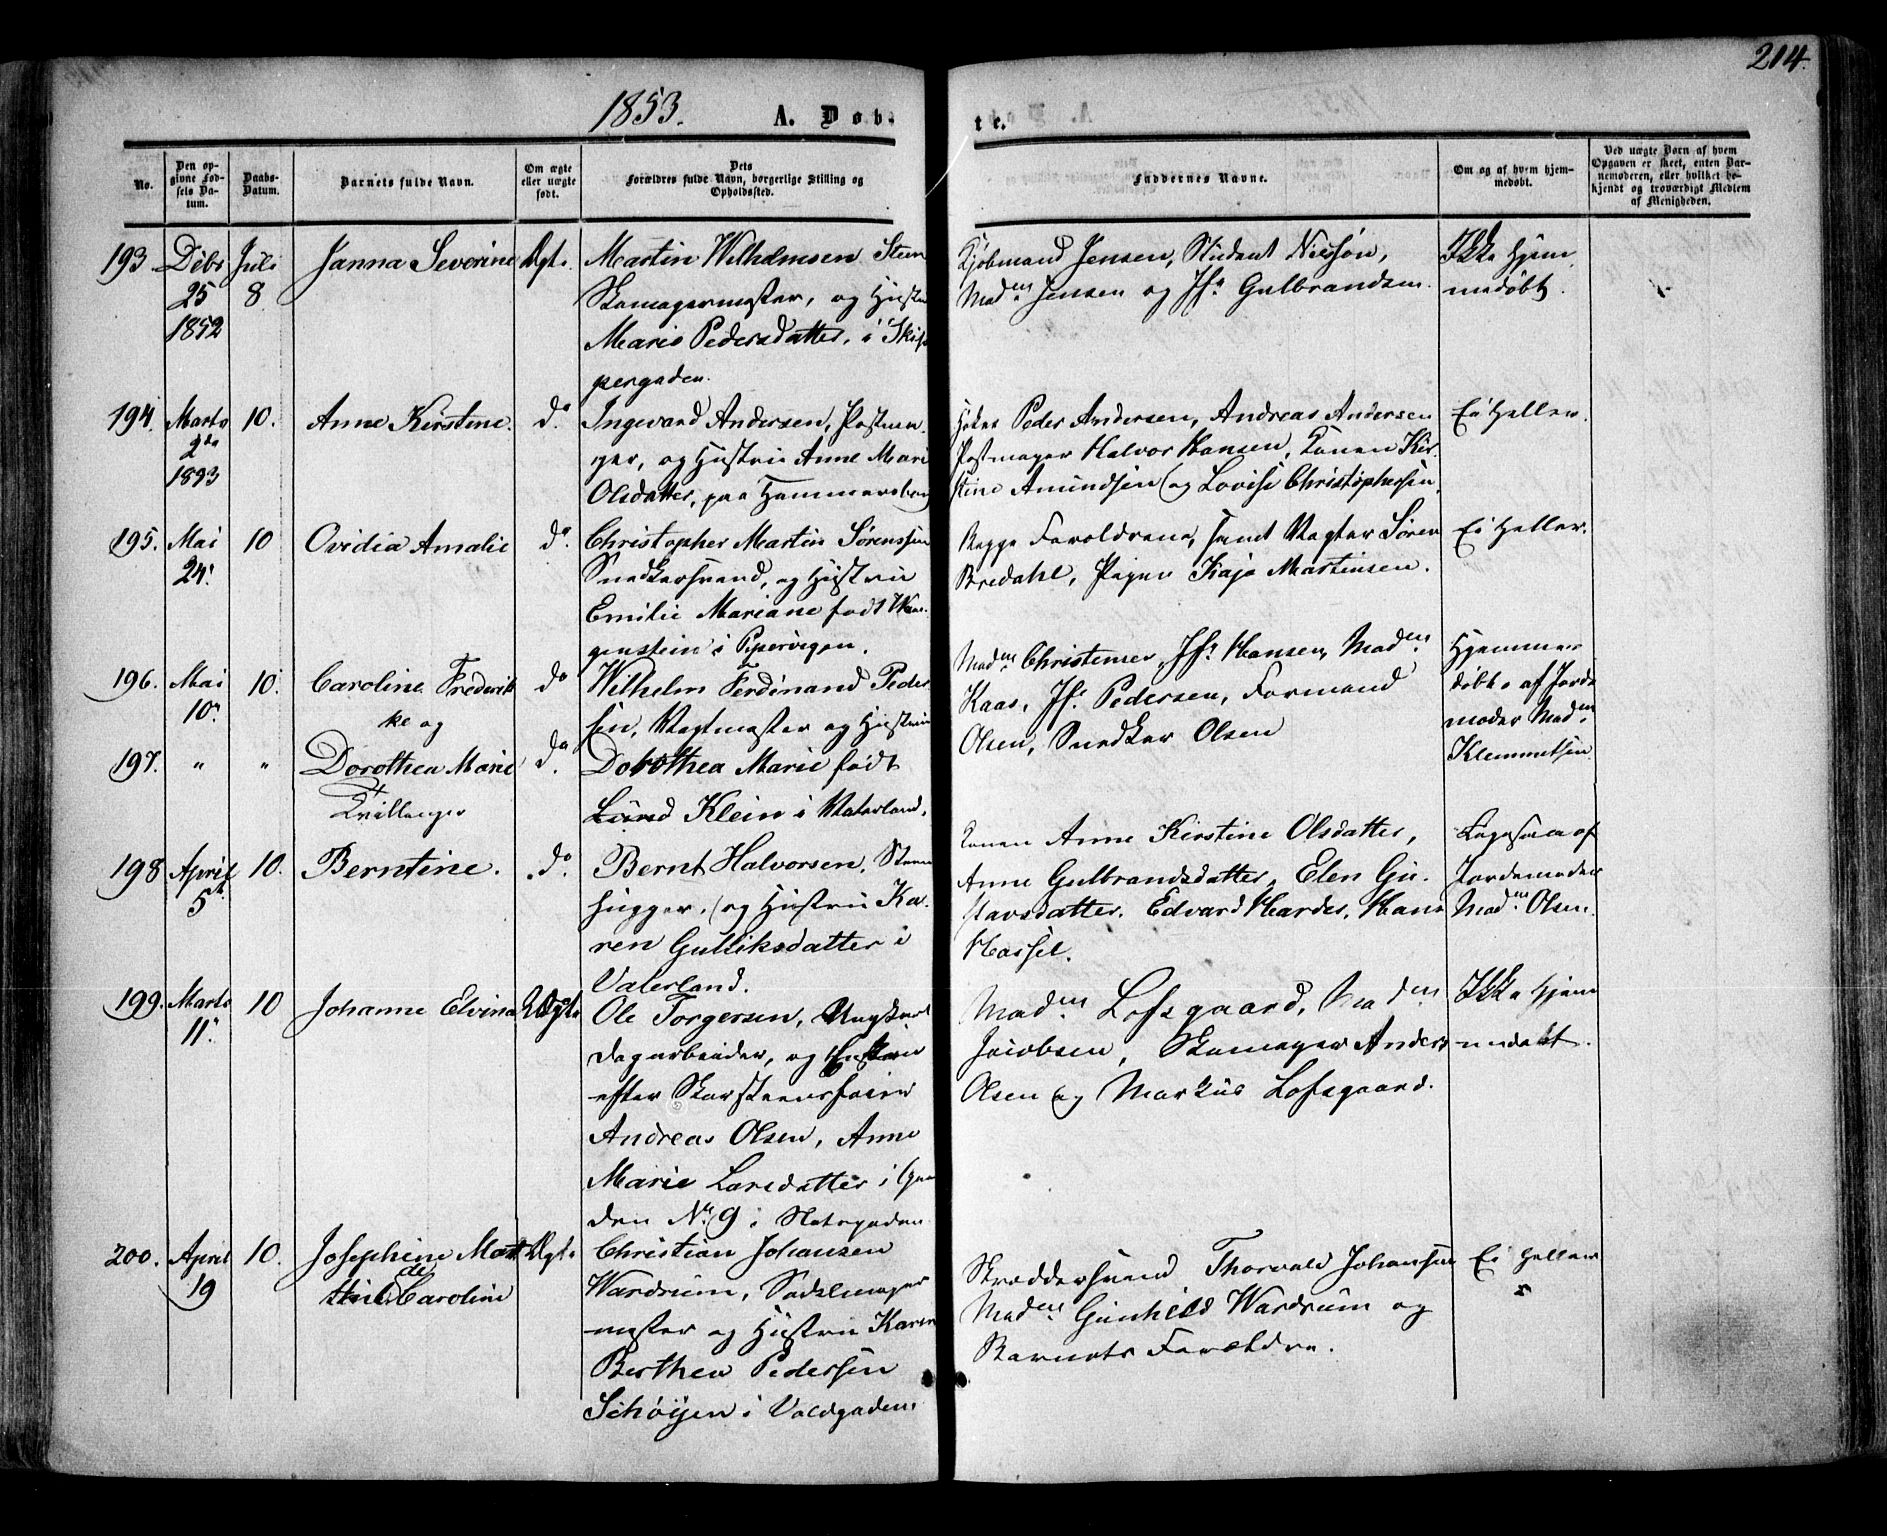 214.
1853. A. Døb- te.
No.
Den opgivne Fødsels Datum.
Daabs-Datum.
Barnets fulde Navn.
Om ægte eller uægte født.
Dets Forældres fulde Navn, borgerlige Stilling og Opholdssted.
Faddernes Navne.
Om og af hvem hjemmedøbt.
Ved uægte Børn af hvem Opgaven er skeet, enten Barnemoderen, eller hvilket bekjendt og troværdigt Medlem af Menigheden.
193 Debr 25 1852
Juli 8
Janna Severine
Ægte
Martin Wilhelmsen Steen
Skomagermester, og Hustru
Marie Pedersdatter, i Skip
pergaden.
Kjøbmand Jensen, Student Nielsøn,
Madm Jensen og Jfr Gulbrandsen.
Ikke Hjem
medøbt.
194. Marts 2den 1853
10.
Anne Kirstine.
do
Ingevard Andersen,
og Hustru Anne Marie
Olsdatter, paa Hammersborg
Peder Andersen, Andreas Andersen
Halvor Hansen, Konen Kir
stine Amundsen og Lovise Christophersen.
Ei heller.
195. Mai 24.
10
Ovidia Amalie
do.
Christopher Martin Sørenssen
Snedkersvend, og Hustru
Emilie Mariane født Wan
genstein i Pipervigen.
Begge Forældrene, samt Vægter Søren
Bredahl, Pigen Kaja Martinsen.
Ei heller.
196. Mai 10.
10.
Caroline Frederik
ke og
do
Wilhelm Ferdinand Peder
sen, Vagtmester og Hustru
Madm Christensen, Jfr Hansen, Madm
Kaas, Jfr. Pedersen, Formand
Olsen, Snedker Olsen
Hjemme
døbte af Jorde
moder Madm
Klemmetsen
197. " "
Dorothea Marie
Tvillinger
do.
Dorothea Marie født
Lund Klein i Vaterland.
198 April 5t
10.
Berntine.
do.
Bernt Halvorsen, Steen
hugger, og Hustru Ka
ren Gulliksdatter i
Vaterland.
Konen Anne Kirstine Olsdatter,
Anne Gulbrandsdatter, Elen Gu
stavsdatter, Edvard Harder, Hans
Hassel.
Ligesaa af
Jordemoder
Madm Olsen.
199. Marts 11.
10
Johanne Elvina
Uægte
Ole Torgersen, Ungkarl
Dagarbeider, og Enken
efter Skorsteensfeier
Andreas Olsen, Anne
Marie Larsdatter i Gaar
den No 9 i
Madm Lofsgaard, Madm
Jacobsen, Skomager Anders
Olsen og Markus Lofsgaard.
Ikke hjem
medøbt.
200. April 19
10.
Josephine Mat
hilde Caroline
Ægte
Christian Johansen
Wardrum, Sadelmager
mester og Hustru Karen
Berthea Pedersen
Schøyen i Voldgaden.
Skræddersvend Thorvald Johansen
Madm Gunhild Wardrum og
Barnets Forældre.
Ei heller